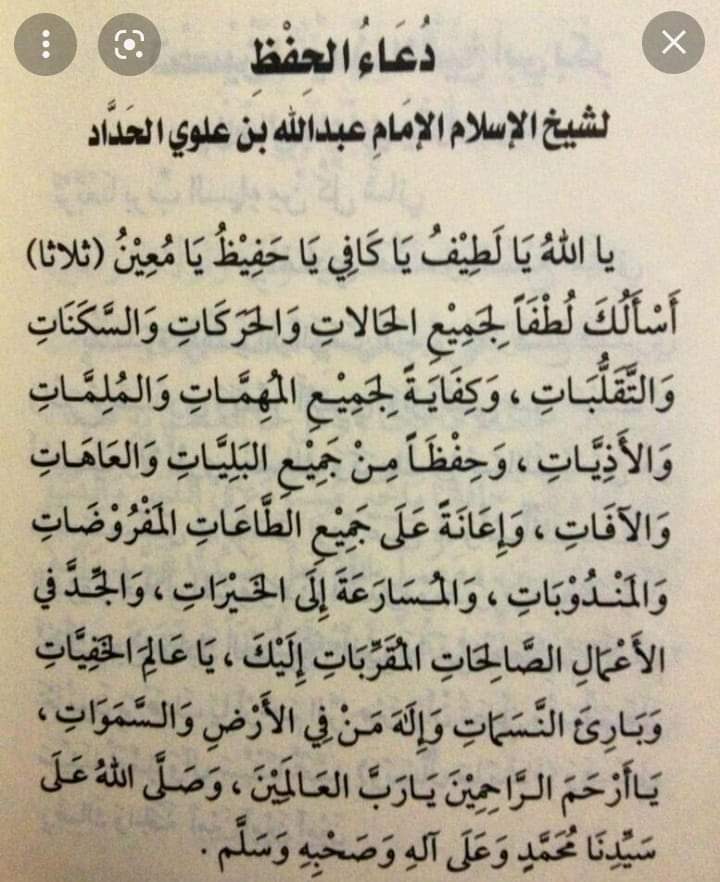 دُعَاءُ الحِفْظِ
لشيخ الإسلام الإمَامِ عبدالله بن علوي الحَدَّاد
يا اللهُ يَا لَطِيْفُ يَا كَافِي يَا حَفِيْظُ يَا مُعِيْنُ (ثلاثا)
أَسْأَلُكَ لُطْفَاً لِجَمِيْعِ الحَالاتِ وَالحَرَكَاتِ وَالسَّكَنَاتِ
وَالتَّقَلُّبَاتِ ، وَكِفَايَةً لِجَمِيْعِ المُهِمَّاتِ وَالمُلِمَّاتِ
وَالأَذِيَّاتِ ، وَحِفْظَاً مِنْ جَمِيْعِ البَلِيَّاتِ وَالعَاهَاتِ
وَالآفَاتِ ، وَإِعَانَةً عَلَى جَمِيْعِ الطَّاعَاتِ المَفْرُوْضَاتِ
وَالمَنْدُوْبَاتِ ، وَالمُسَارَعَةَ إِلَى الخَيْرَاتِ ، وَالجِّدَّ في
الأَعْمَالِ الصَّالِحَاتِ المُقَرِّبَاتِ إِلَيْكَ ، يَا عَالِمَ الخَفِيَّاتِ
وَبَارِئَ النَّسَمَاتِ وَإِلَهَ مَنْ فِي الأَرْضِ وَالسَّمَوَاتِ ،
يَاأَرْحَمَ الرَّاحِمِيْنَ يَارَبَّ العَالَمِيْنَ ، وَصَلَّى اللهُ عَلَى
سَيِّدِنَا مُحَمَّدٍ وَعَلَى آلِهِ وَصَحْبِهِ وَسَلَّم .